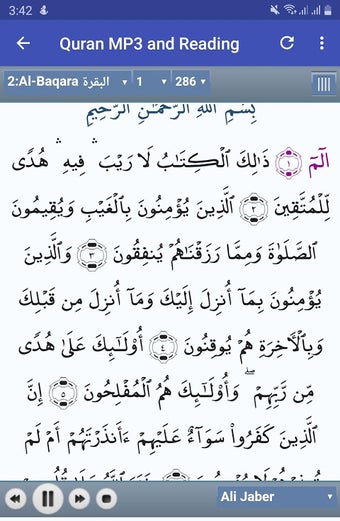 3:42
Quran MP3 and Reading
2:Al-Baqara البقرة 1 286
بِسْمِ اللَّهِ الرَّحْمَـٰنِ الرَّحِيمِ
الٓمٓ ﴿١﴾ ذَٰلِكَ ٱلْكِتَـٰبُ لَا رَيْبَ ۛ فِيهِ ۛ هُدًى
لِّلْمُتَّقِينَ ﴿٢﴾ ٱلَّذِينَ يُؤْمِنُونَ بِٱلْغَيْبِ وَيُقِيمُونَ
ٱلصَّلَوٰةَ وَمِمَّا رَزَقْنَـٰهُمْ يُنفِقُونَ ﴿٣﴾ وَٱلَّذِينَ
يُؤْمِنُونَ بِمَآ أُنزِلَ إِلَيْكَ وَمَآ أُنزِلَ مِن قَبْلِكَ
وَبِٱلْـَٔاخِرَةِ هُمْ يُوقِنُونَ ﴿٤﴾ أُو۟لَـٰٓئِكَ عَلَىٰ هُدًى
مِّن رَّبِّهِمْ ۖ وَأُو۟لَـٰٓئِكَ هُمُ ٱلْمُفْلِحُونَ ﴿٥﴾ إِنَّ
ٱلَّذِينَ كَفَرُوا۟ سَوَآءٌ عَلَيْهِمْ ءَأَنذَرْتَهُمْ أَمْ لَمْ
Ali Jaber